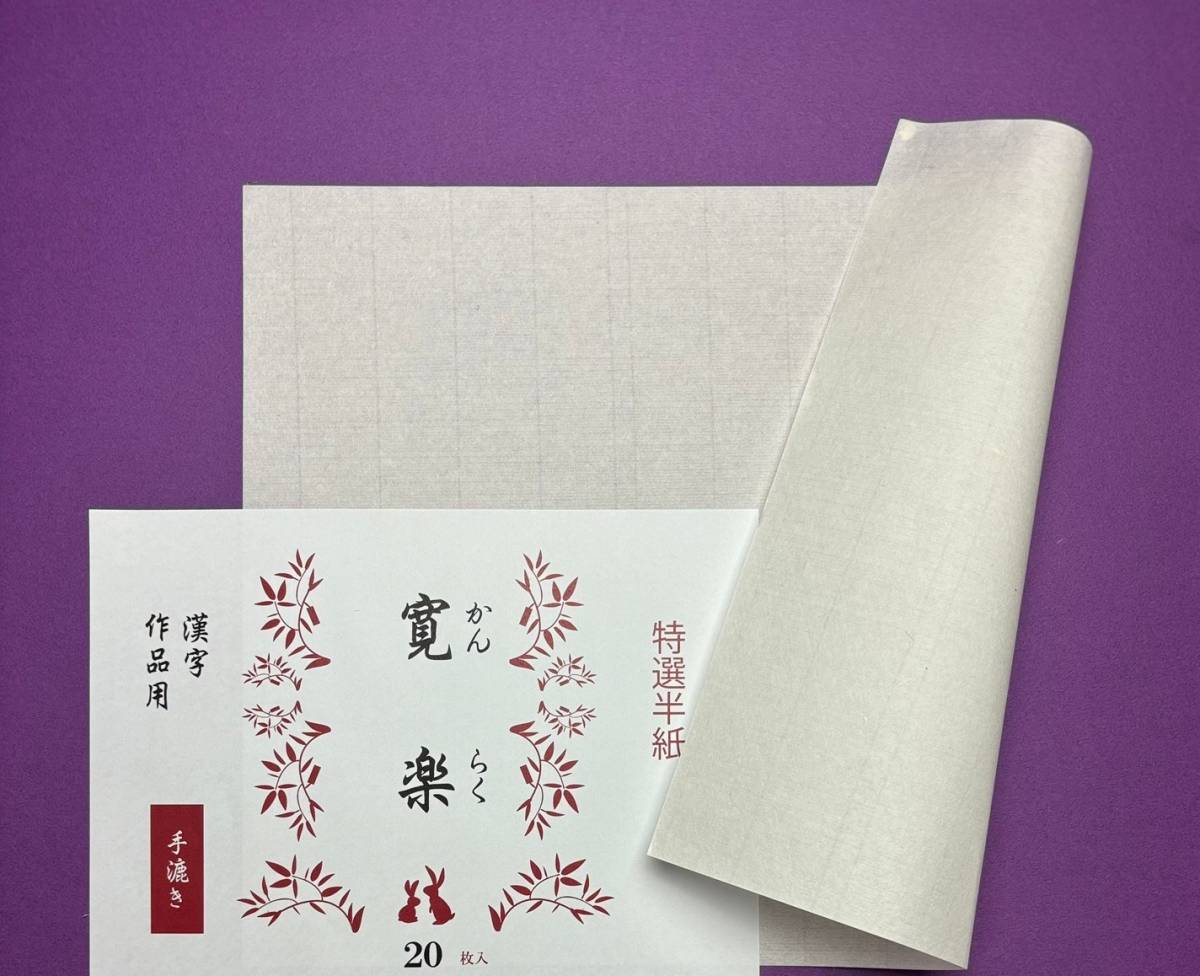 特選半紙
寛楽
かんらく
漢字
作品用
手漉き
20枚入